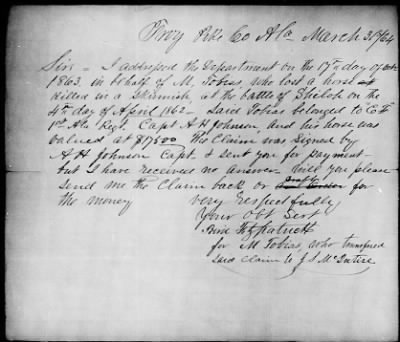 Troy Pike Co Ala March 31/64
Sir - I addressed the Department on the 17th day of
1863, in behalf of M. Tobias, who lost a horse
killed in a skirmish at the battle of Shiloh on the
4th day of April 1862 - Said Tobias belonged to Co F
1st Ala Regt. Capt A H Johnson, and his horse was
valued at $17500 This Claim was signed by
A H Johnson Capt. & sent you for payment -
but I have received no answer Will you please
send me the Claim back or for
the money very respectfully
Your Obt Servt
Fitzpatrick
for M Tobias, who transfered
said claim to J S McIntire